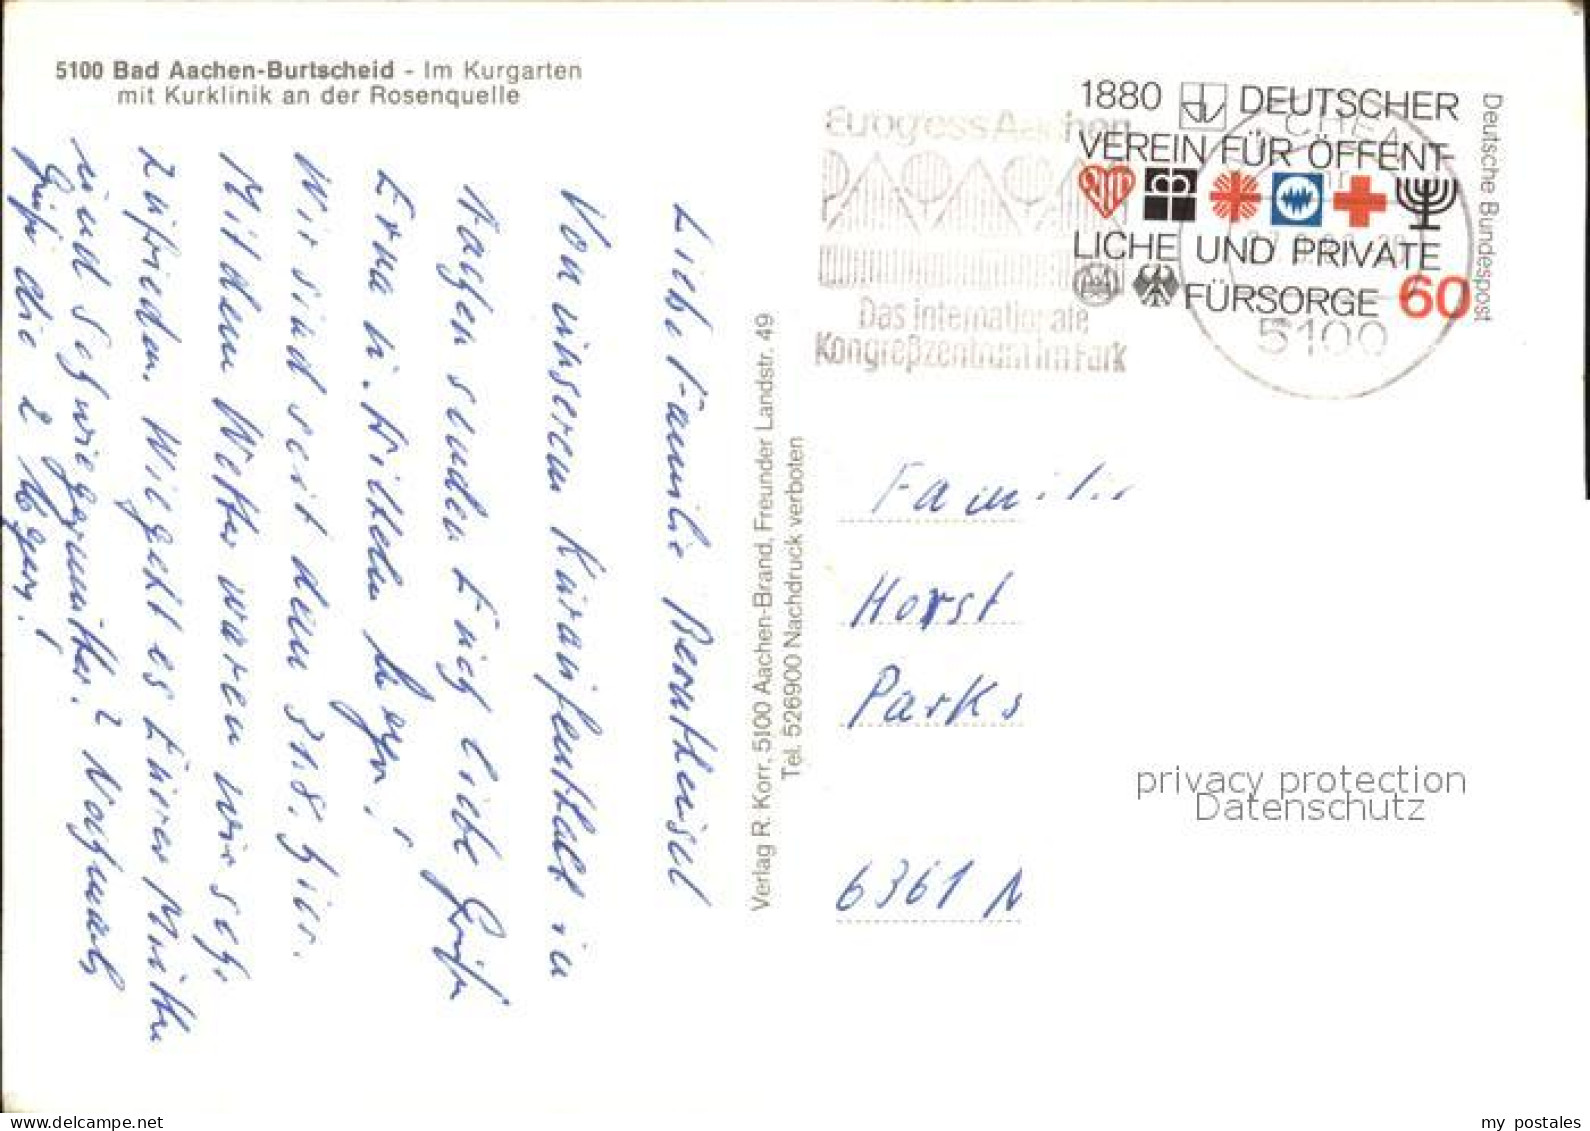 5100 Bad Aachen-Burtscheid - Im Kurgarten
mit Kurklinik an der Rosenquelle
Liebe Familie
Von unserem Kuraufenthalt in
Aachen senden Euch liebe Grüße
Erna u.
Wir sind seit dem 31.8. hier.
Mit dem Wetter waren wir sehr
zufrieden. Wie geht es Eurer Mutter
und Schwiegermutter? Nochmals
Grüße die 2
Verlag R. Korr, 5100 Aachen-Brand, Freunder Landstr. 49
Tel. 526900 Nachdruck verboten
Eurogress Aachen
Das internationale
Kongreßzentrum im Park
1880 DEUTSCHER
VEREIN FÜR ÖFFENT-
LICHE UND PRIVATE
FÜRSORGE 60
Deutsche Bundespost
AACHEN
5100
Familie
Horst
Parks
6361 N
privacy protection
Datenschutz
my postales